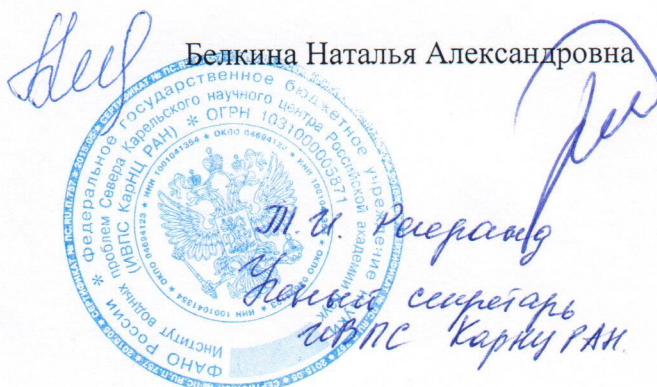 Белкина Наталья Александровна
ФАНО РОССИИ * Федеральное государственное бюджетное учреждение науки
Институт водных проблем Севера Карельского научного центра Российской академии наук
(ИВПС КарНЦ РАН) * ОГРН 1031000005871
* ИНН 1001041354 * ОКПО 04694123
Т. И. Регеранд
Ученый секретарь
ИВПС КарНЦ РАН.